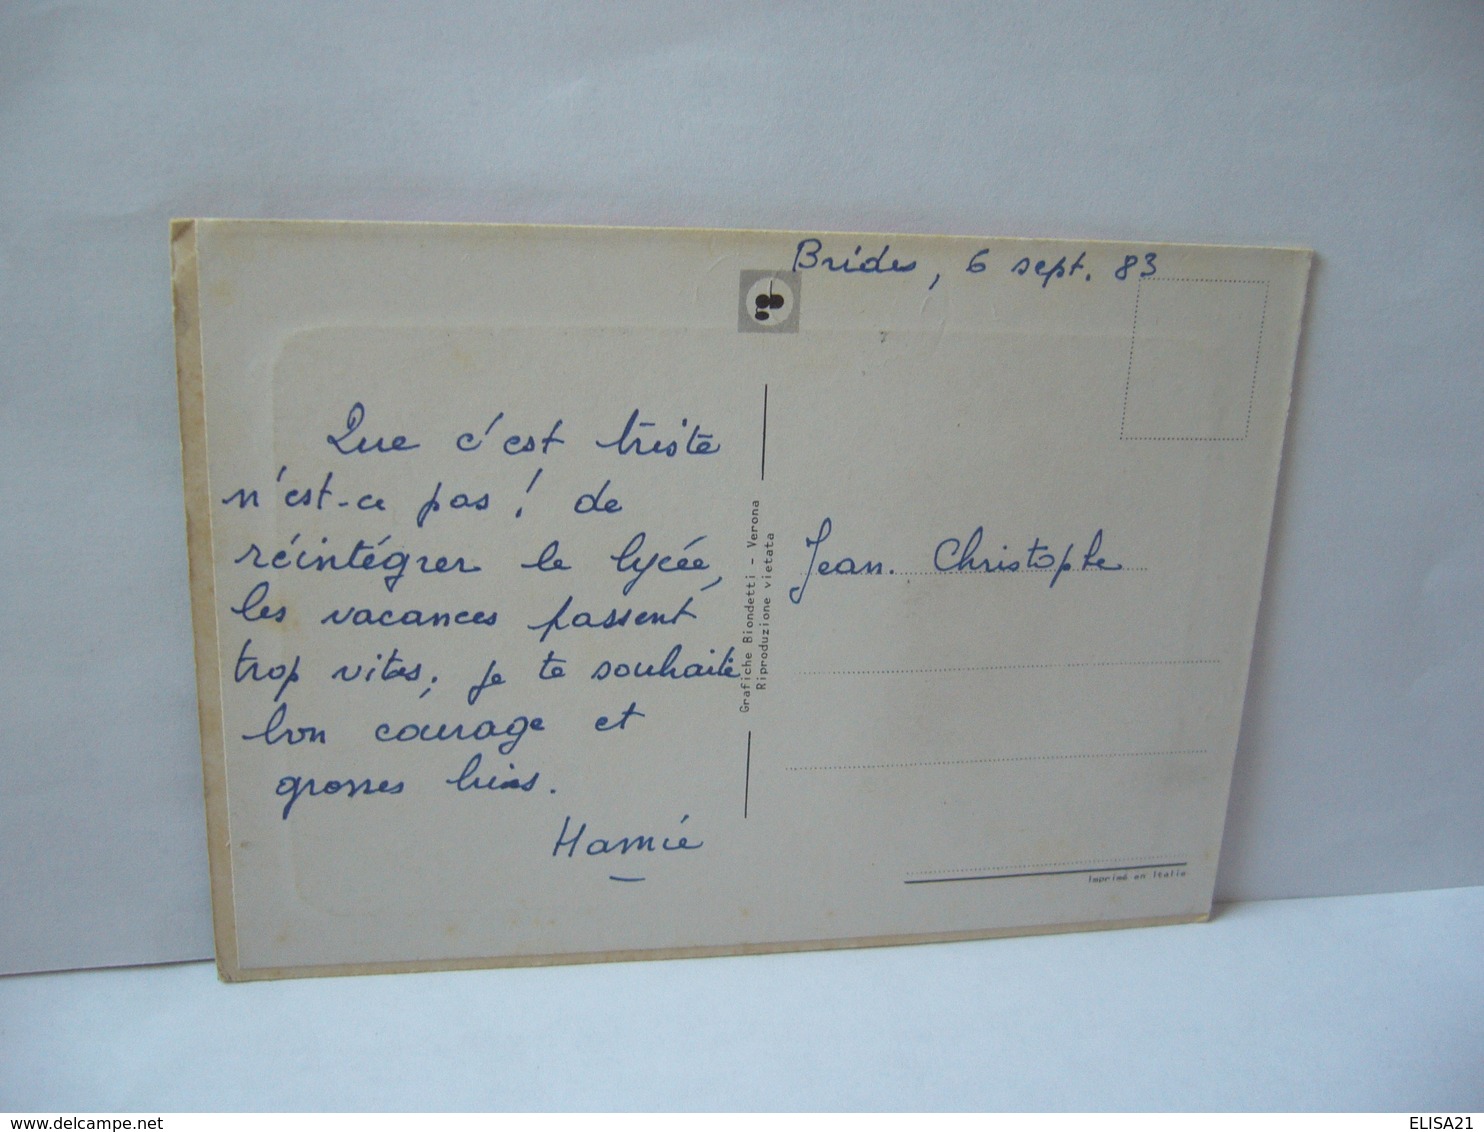 Brides, 6 sept. 83
Que c'est triste
n'est-ce pas! de
réintégrer le lycée,
les vacances passent
trop vites, je te souhaite
bon courage et
grosses bises.
Mamie
Grafiche Biondetti - Verona
Riproduzione vietata
Jean. Christophe
Imprimé en Italie
www.delcampe.net
ELISA21